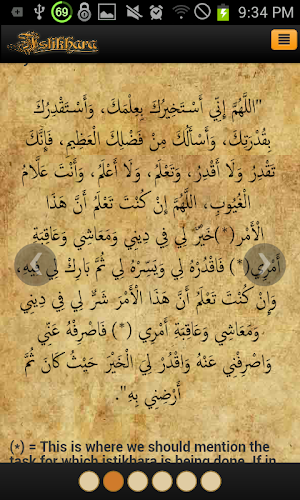 69 9:34 PM
Istikhara
"اللَّهُمَّ إِنِّي أَسْتَخِيرُكَ بِعِلْمِكَ، وَأَسْتَقْدِرُكَ
بِقُدْرَتِكَ، وَأَسْأَلُكَ مِنْ فَضْلِكَ الْعَظِيمِ، فَإِنَّكَ
تَقْدِرُ وَلَا أَقْدِرُ، وَتَعْلَمُ، وَلَا أَعْلَمُ، وَأَنْتَ عَلَّامُ
الْغُيُوبِ، اللَّهُمَّ إِنْ كُنْتَ تَعْلَمُ أَنَّ هَذَا
الْأَمْرَ(*)خَيْرٌ لِي فِي دِينِي وَمَعَاشِي وَعَاقِبَةِ
أَمْرِي(*) فَاقْدُرْهُ لِي وَيَسِّرْهُ لِي ثُمَّ بَارِكْ لِي فِيهِ،
وَإِنْ كُنْتَ تَعْلَمُ أَنَّ هَذَا الْأَمْرَ شَرٌّ لِي فِي دِينِي
وَمَعَاشِي وَعَاقِبَةِ أَمْرِي (*) فَاصْرِفْهُ عَنِّي
وَاصْرِفْنِي عَنْهُ وَاقْدُرْ لِي الْخَيْرَ حَيْثُ كَانَ ثُمَّ
أَرْضِنِي بِهِ".
(*) = This is where we should mention the
task for which istikhara is being done. If in